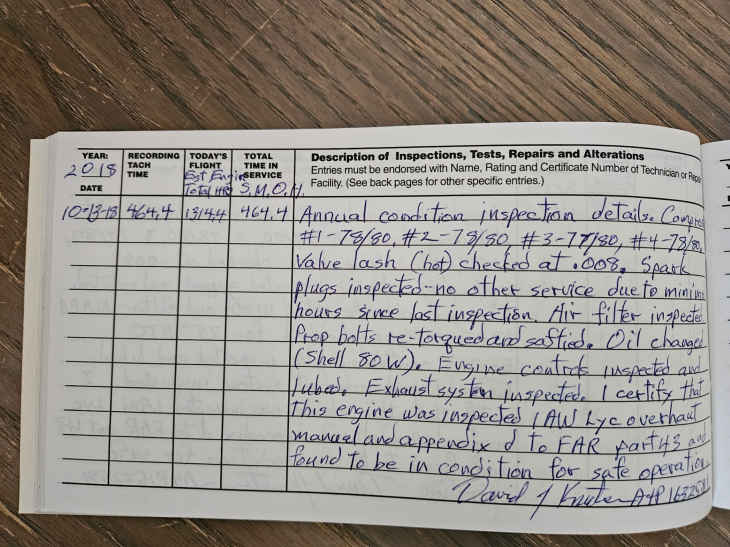 YEAR: RECORDING TODAY'S TOTAL Description of Inspections, Tests, Repairs and Alterations
2018 TACH FLIGHT TIME IN Entries must be endorsed with Name, Rating and Certificate Number of Technician or Repair
TIME Est Engine SERVICE Facility. (See back pages for other specific entries.)
DATE Total HRS S.M.O.H.
10-13-18 464.4 1314.4 464.4 Annual condition inspection details. Comp
#1-78/80, #2-78/80, #3-77/80, #4-78/80,
Valve lash (hot) checked at .008. Spark
plugs inspected-no other service due to minim
hours since last inspection. Air filter inspected
Prop bolts re-torqued and saftied. Oil changed
(Shell 80W). Engine controls inspected and
lubed. Exhaust system inspected. I certify that
this engine was inspected IAW Lyc overhaul
manual and appendix d to FAR part 43 and
found to be in condition for safe operation
David J A+P